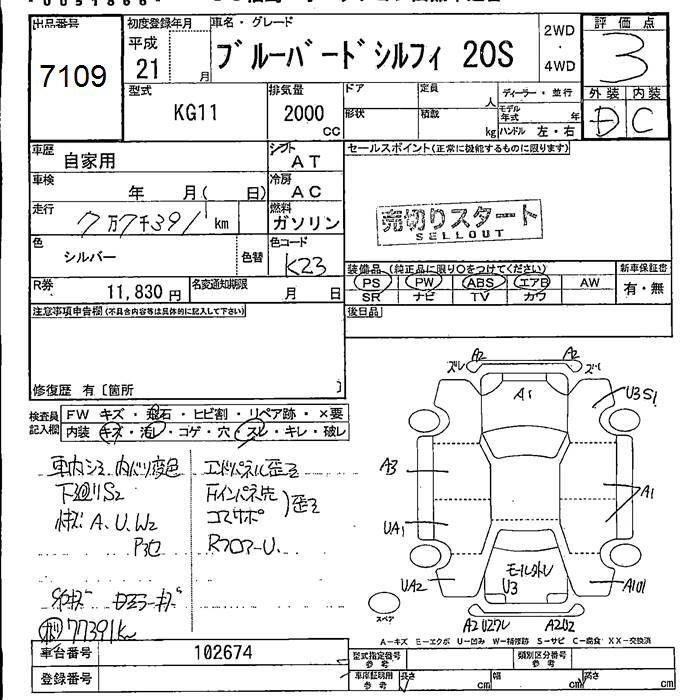 出品番号
7109
初度登録年月
平成
21 月
車名・グレード
ブルーバード シルフィ 20S
2WD
・
4WD
評価点
3
外装 内装
D C
型式
KG11
排気量
2000
CC
ドア
形状
定員
人
積載
kg
ディーラー・並行
モデル
年式 年
ハンドル 左・右
車歴
自家用
シフト
AT
車検
年 月( 日)
冷房
AC
走行
7万7千391 km
燃料
ガソリン
色
シルバー
色替
色コード
K23
R券
11,830 円
名変通知期限
月 日
セールスポイント(正常に機能するものに限ります)
売切りスタート
SELLOUT
装備品 (純正品に限り○をつけてください)
PS PW ABS エアB AW
SR ナビ TV カワ
新車保証書
有・無
後日品
注意事項申告欄(不具合内容等は具体的に記入して下さい)
修復歴 有〔箇所 〕
検査員
記入欄
FW キズ・飛石・ヒビ割・リペア跡・×要
内装 キズ・汚レ・コゲ・穴・スレ・キレ・破レ
車内シミ 内バリ変色
下廻りS2
A、U、W2
エンドパネル歪ミ
Fインパネ先
コアサポ
歪ミ
RフロアーU、
77391km
ズレ A2 A2 ズレ
A1
U3S1
A3
A1
UA1
UA2
モールハズレ
U3
A1U1
A2U2ワレ A2U2
スペア
A−キズ E−エクボ U−凹み W−補修跡 S−サビ C−腐食 XX−交換済
車台番号
102674
登録番号
型式指定番号
参考
類別区分番号
参考
車庫証明用
参考
長さ cm 幅 cm 高さ cm